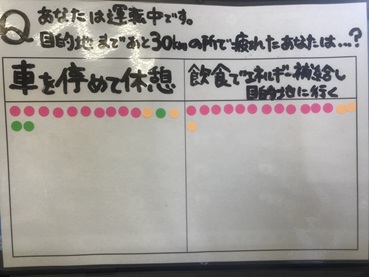 Q あなたは運転中です。
目的地まであと30kmの所で疲れたあなたは…?
車を停めて休憩
飲食でエネルギー補給し
目的地に行く